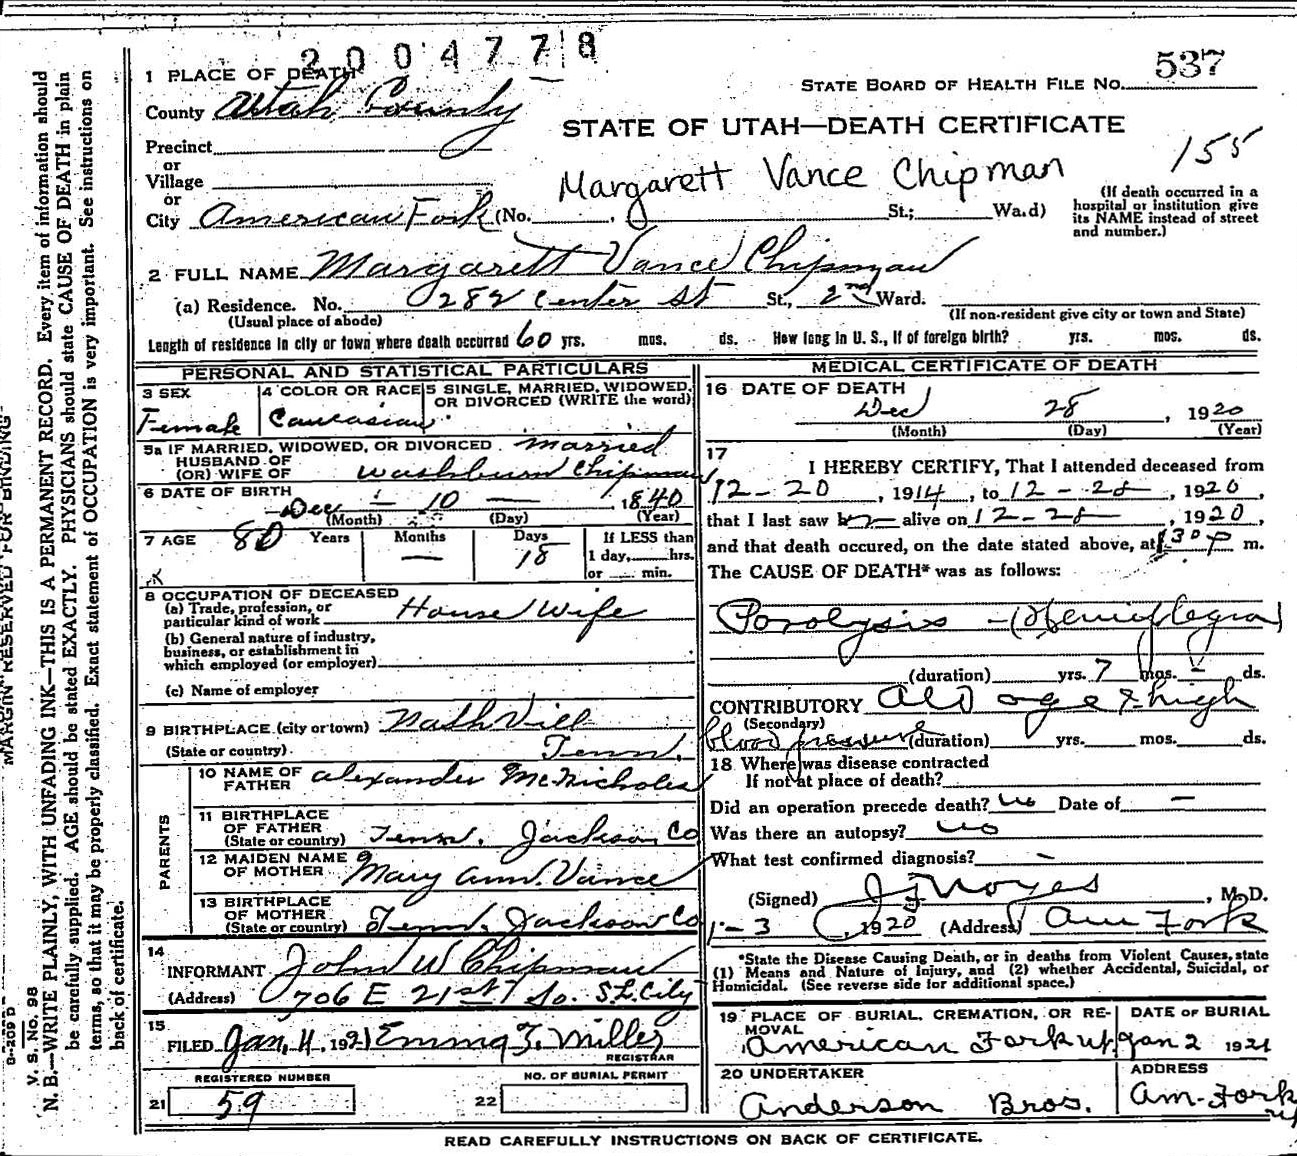 2004778
1 PLACE OF DEATH
STATE BOARD OF HEALTH FILE NO. 537
County Utah County
STATE OF UTAH—DEATH CERTIFICATE
Precinct
or
Village
or
Margarett Vance Chipman
155
City American Fork (No. , St.; Wa.d)
(If death occurred in a
hospital or institution give
its NAME instead of street
and number.)
2 FULL NAME Margarett Vance Chipman
(a) Residence. No. 282 Center St St., 2nd Ward.
(Usual place of abode)
(If non-resident give city or town and State)
Length of residence in city or town where death occurred 60 yrs. mos. ds. How long in U. S., if of foreign birth? yrs. mos. ds.
PERSONAL AND STATISTICAL PARTICULARS
3 SEX
Female
4 COLOR OR RACE
Caucasian
5 SINGLE, MARRIED, WIDOWED,
OR DIVORCED (WRITE the word)
married
5a IF MARRIED, WIDOWED, OR DIVORCED
HUSBAND OF
(OR) WIFE OF Washburn Chipman
6 DATE OF BIRTH
Dec — 10 — 1840
(Month) (Day) (Year)
7 AGE 80 Years
Months —
Days 18
If LESS than
1 day, hrs.
or min.
8 OCCUPATION OF DECEASED
(a) Trade, profession, or
particular kind of work House Wife
(b) General nature of industry,
business, or establishment in
which employed (or employer)
(c) Name of employer
9 BIRTHPLACE (city or town) Nashvill
(State or country) Tenn.
PARENTS
10 NAME OF
FATHER Alexander McNicholes
11 BIRTHPLACE
OF FATHER
(State or country) Tenn. Jackson Co
12 MAIDEN NAME
OF MOTHER Mary Ann Vance
13 BIRTHPLACE
OF MOTHER
(State or country) Tenn. Jackson Co
14
INFORMANT John W Chipman
(Address) 706 E 21st So. S L City
15
FILED Jan, 4, 1921 Emma F. Miller
REGISTRAR
REGISTERED NUMBER
21 59
NO. OF BURIAL PERMIT
22
MEDICAL CERTIFICATE OF DEATH
16 DATE OF DEATH
Dec 28, 1920
(Month) (Day) (Year)
17
I HEREBY CERTIFY, That I attended deceased from
12-20, 1914, to 12-28, 1920,
that I last saw h alive on 12-28, 1920,
and that death occured, on the date stated above, at 1 30 P m.
The CAUSE OF DEATH* was as follows:
Paralysis - (Hemiplegia)
(duration) yrs. 7 mos. - ds.
CONTRIBUTORY Old age & high
(Secondary)
blood pressure (duration) yrs. mos. ds.
18 Where was disease contracted
If not at place of death?
Did an operation precede death? no Date of —
Was there an autopsy? no
What test confirmed diagnosis? -
(Signed) Noyes, M.D.
1-3, 1920 (Address) Am Fork
*State the Disease Causing Death, or in deaths from Violent Causes, state
(1) Means and Nature of Injury, and (2) whether Accidental, Suicidal, or
Homicidal. (See reverse side for additional space.)
19 PLACE OF BURIAL, CREMATION, OR RE-
MOVAL
American Fork Ut
DATE OF BURIAL
Jan 2 1921
20 UNDERTAKER
Anderson Bros.
ADDRESS
Am-Fork
READ CAREFULLY INSTRUCTIONS ON BACK OF CERTIFICATE.
MARGIN RESERVED FOR BINDING
B-209 D
V. S. No. 98
N. B.—WRITE PLAINLY, WITH UNFADING INK—THIS IS A PERMANENT RECORD. Every item of information should
be carefully supplied. AGE should be stated EXACTLY. PHYSICIANS should state CAUSE OF DEATH in plain
terms, so that it may be properly classified. Exact statement of OCCUPATION is very important. See instructions on
back of certificate.